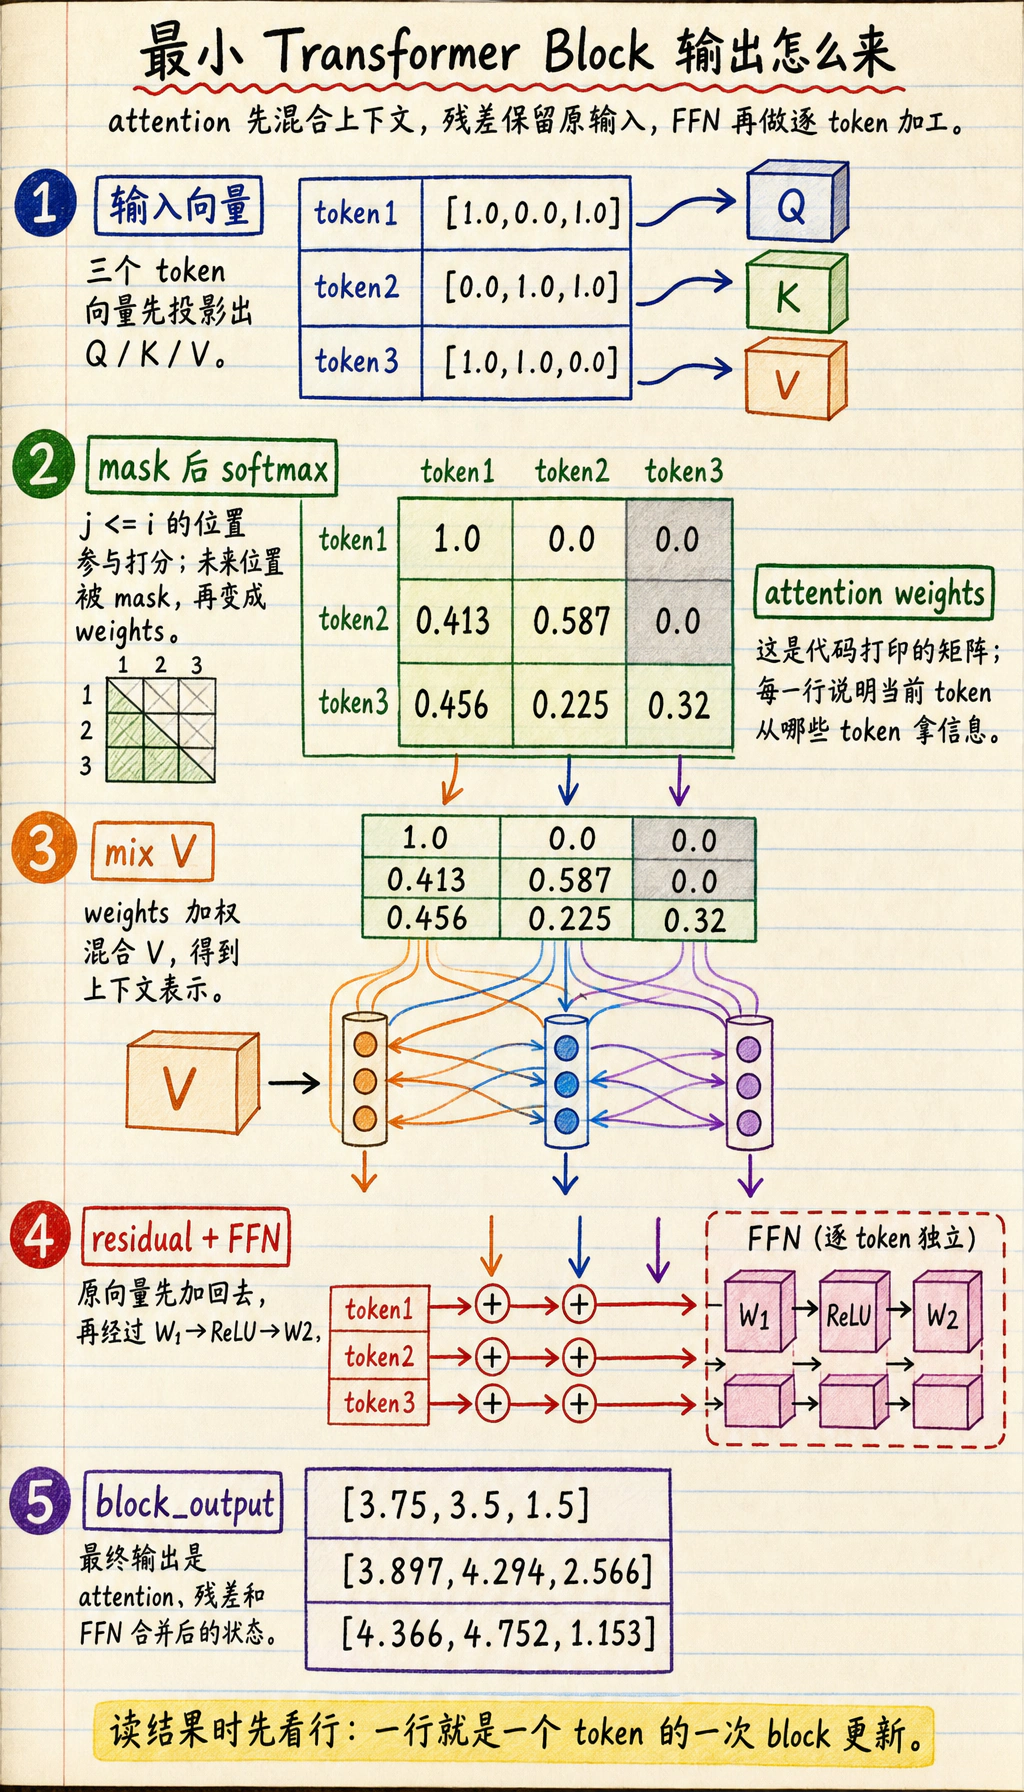 最小 Transformer Block 输出怎么来
attention 先混合上下文，残差保留原输入，FFN 再做逐 token 加工。
1 输入向量
三个 token
向量先投影出
Q / K / V。
token1 [1.0,0.0,1.0]
token2 [0.0,1.0,1.0]
token3 [1.0,1.0,0.0]
Q
K
V
2 mask 后 softmax
j <= i 的位置
参与打分；未来位置
被 mask，再变成
weights。
1 2 3
1
2
3
token1 token2 token3
token1 1.0 0.0 0.0
token2 0.413 0.587 0.0
token3 0.456 0.225 0.32
attention weights
这是代码打印的矩阵；
每一行说明当前 token
从哪些 token 拿信息。
3 mix V
weights 加权
混合 V，得到
上下文表示。
1.0 0.0 0.0
0.413 0.587 0.0
0.456 0.225 0.32
V
4 residual + FFN
原向量先加回去，
再经过 W₁→ReLU→W2，
token1 + +
token2 + +
token3 + +
FFN（逐 token 独立）
W1 ReLU W2
5 block_output
最终输出是
attention、残差和
FFN 合并后的状态。
[3.75, 3.5, 1.5]
[3.897,4.294,2.566]
[4.366,4.752,1.153]
读结果时先看行：一行就是一个 token 的一次 block 更新。